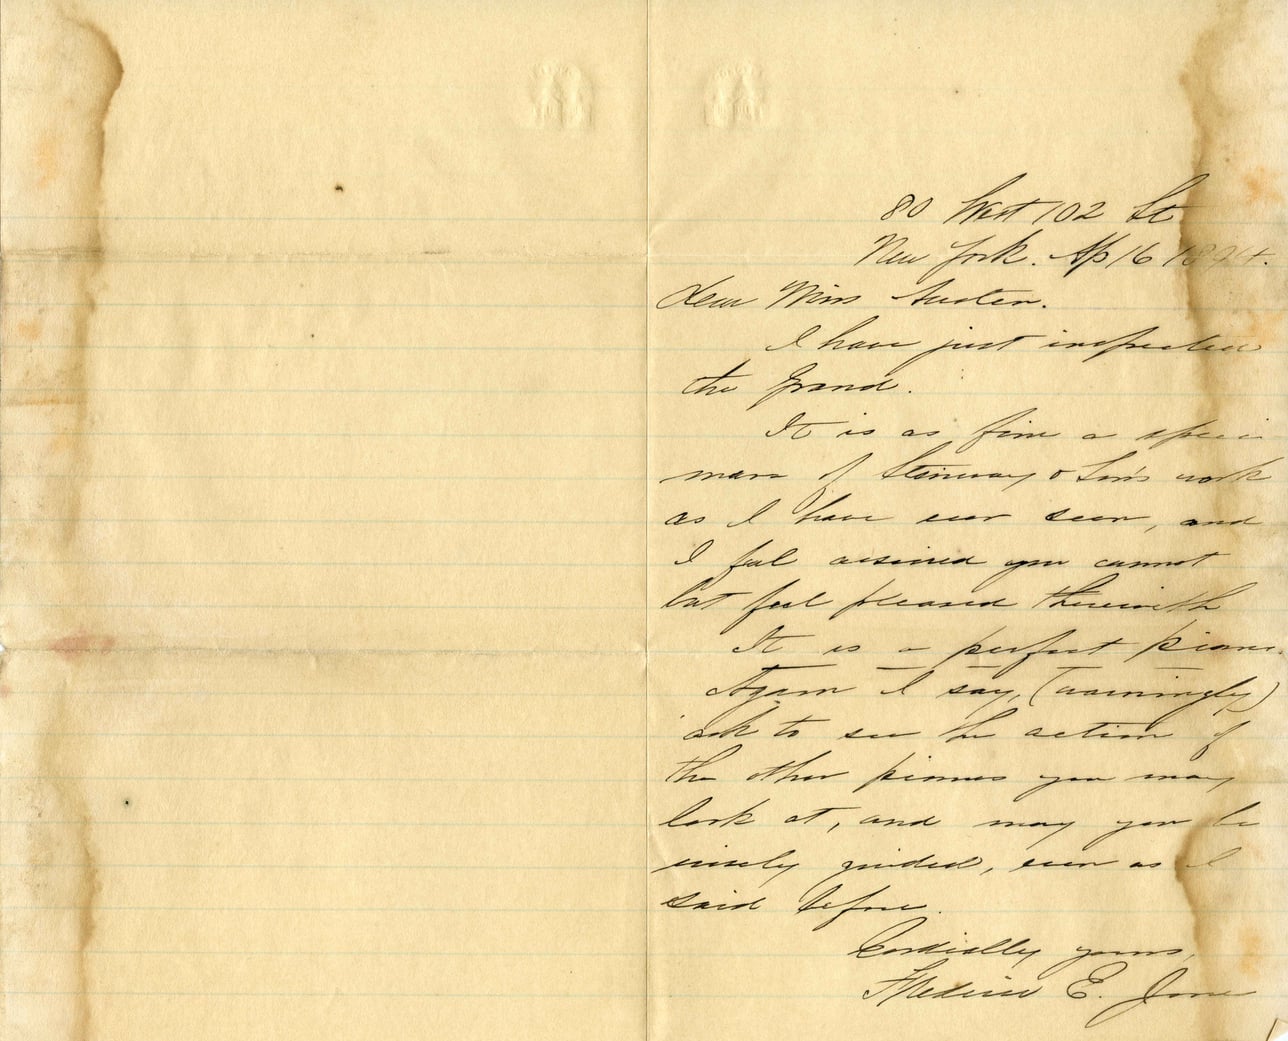 80 West 102 St
New York. Ap 16 1894.
Dear Miss Austen.
I have just inspected
the Grand.
It is as fine a speci
man of Steinway & Son's work
as I have ever seen, and
I feel assured you cannot
but feel pleased therewith
It is a perfect piano.
Again I say, (warningly)
ask to see the action of
the other pianos you may
look at, and may you be
wisely guided, even as I
said before.
Cordially yours,
E. Jones